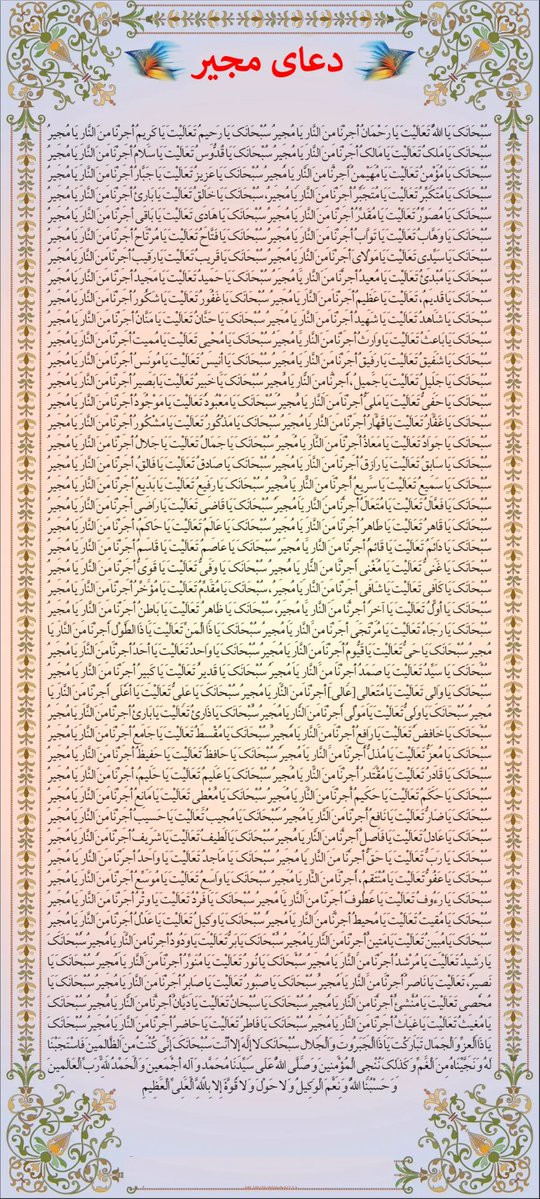 دعای مجیر
سُبْحانَکَ یا اللهُ تَعالَیْتَ یا رَحْمانُ أجِرْنا مِنَ النَّارِ یا مُجیرُ سُبْحانَکَ یا رَحیمُ تَعالَیْتَ یا کَریمُ أجِرْنا مِنَ النَّارِ یا مُجیرُ
سُبْحانَکَ یا مَلِکُ تَعالَیْتَ یا مالِکُ أجِرْنا مِنَ النَّارِ یا مُجیرُ سُبْحانَکَ یا قُدُّوسُ تَعالَیْتَ یا سَلامُ أجِرْنا مِنَ النَّارِ یا مُجیرُ
سُبْحانَکَ یا مُؤْمِنُ تَعالَیْتَ یا مُهَیْمِنُ أجِرْنا مِنَ النَّارِ یا مُجیرُ سُبْحانَکَ یا عَزیزُ تَعالَیْتَ یا جَبّارُ أجِرْنا مِنَ النَّارِ یا مُجیرُ
سُبْحانَکَ یا مُتَکَبِّرُ تَعالَیْتَ یا مُتَجَبِّرُ أجِرْنا مِنَ النَّارِ یا مُجیرُ، سُبْحانَکَ یا خالِقُ تَعالَیْتَ یا بارِئُ أجِرْنا مِنَ النَّارِ یا مُجیرُ
سُبْحانَکَ یا مُصَوِّرُ تَعالَیْتَ یا مُقَدِّرُ أجِرْنا مِنَ النَّارِ یا مُجیرُ سُبْحانَکَ یا هادی تَعالَیْتَ یا باقی أجِرْنا مِنَ النَّارِ یا مُجیرُ
سُبْحانَکَ یا وَهّابُ تَعالَیْتَ یا تَوّابُ أجِرْنا مِنَ النَّارِ یا مُجیرُ سُبْحانَکَ یا فَتّاحُ تَعالَیْتَ یا مُرْتاحُ أجِرْنا مِنَ النَّارِ یا مُجیرُ
سُبْحانَکَ یا سَیِّدی تَعالَیْتَ یا مَوْلایَ أجِرْنا مِنَ النَّارِ یا مُجیرُ سُبْحانَکَ یا قَریبُ تَعالَیْتَ یا رَقیبُ أجِرْنا مِنَ النَّارِ یا مُجیرُ
سُبْحانَکَ یا مُبْدِئُ تَعالَیْتَ یا مُعیدُ أجِرْنا مِنَ النَّارِ یا مُجیرُ سُبْحانَکَ یا حَمیدُ تَعالَیْتَ یا مَجیدُ أجِرْنا مِنَ النَّارِ یا مُجیرُ
سُبْحانَکَ یا قَدیمُ، تَعالَیْتَ یا عَظیمُ أجِرْنا مِنَ النَّارِ یا مُجیرُ سُبْحانَکَ یا غَفُورُ تَعالَیْتَ یا شَکُورُ أجِرْنا مِنَ النَّارِ یا مُجیرُ
سُبْحانَکَ یا شاهِدُ تَعالَیْتَ یا شَهیدُ أجِرْنا مِنَ النَّارِ یا مُجیرُ سُبْحانَکَ یا حَنّانُ تَعالَیْتَ یا مَنّانُ أجِرْنا مِنَ النَّارِ یا مُجیرُ
سُبْحانَکَ یا باعِثُ تَعالَیْتَ یا وارِثُ أجِرْنا مِنَ النَّارِ یا مُجیرُ سُبْحانَکَ یا مُحیی تَعالَیْتَ یا مُمیتُ أجِرْنا مِنَ النَّارِ یا مُجیرُ
سُبْحانَکَ یا شَفیقُ تَعالَیْتَ یا رَفیقُ أجِرْنا مِنَ النَّارِ یا مُجیرُ سُبْحانَکَ یا أنیسُ تَعالَیْتَ یا مُونِسُ أجِرْنا مِنَ النَّارِ یا مُجیرُ
سُبْحانَکَ یا جَلیلُ تَعالَیْتَ یا جَمیلُ، أجِرْنا مِنَ النَّارِ یا مُجیرُ سُبْحانَکَ یا خَبیرُ تَعالَیْتَ یا بَصیرُ أجِرْنا مِنَ النَّارِ یا مُجیرُ
سُبْحانَکَ یا حَفِیُّ تَعالَیْتَ یا مَلِیُّ أجِرْنا مِنَ النَّارِ یا مُجیرُ سُبْحانَکَ یا مَعْبُودُ تَعالَیْتَ یا مَوْجُودُ أجِرْنا مِنَ النَّارِ یا مُجیرُ
سُبْحانَکَ یا غَفّارُ تَعالَیْتَ یا قَهّارُ أجِرْنا مِنَ النَّارِ یا مُجیرُ سُبْحانَکَ یا مَذْکُورُ تَعالَیْتَ یا مَشْکُورُ أجِرْنا مِنَ النَّارِ یا مُجیرُ
سُبْحانَکَ یا جَوادُ تَعالَیْتَ یا مَعاذُ أجِرْنا مِنَ النَّارِ یا مُجیرُ سُبْحانَکَ یا جَمالُ تَعالَیْتَ یا جَلالُ أجِرْنا مِنَ النَّارِ یا مُجیرُ
سُبْحانَکَ یا سابِقُ تَعالَیْتَ یا رازِقُ أجِرْنا مِنَ النَّارِ یا مُجیرُ سُبْحانَکَ یا صادِقُ تَعالَیْتَ یا فالِقُ، أجِرْنا مِنَ النَّارِ یا مُجیرُ
سُبْحانَکَ یا سَمیعُ تَعالَیْتَ یا سَریعُ أجِرْنا مِنَ النَّارِ یا مُجیرُ سُبْحانَکَ یا رَفیعُ تَعالَیْتَ یا بَدیعُ أجِرْنا مِنَ النَّارِ یا مُجیرُ
سُبْحانَکَ یا فَعّالُ تَعالَیْتَ یا مُتَعالُ أجِرْنا مِنَ النَّارِ یا مُجیرُ سُبْحانَکَ یا قاضی تَعالَیْتَ یا راضی أجِرْنا مِنَ النَّارِ یا مُجیرُ
سُبْحانَکَ یا قاهِرُ تَعالَیْتَ یا طاهِرُ أجِرْنا مِنَ النَّارِ یا مُجیرُ سُبْحانَکَ یا عالِمُ تَعالَیْتَ یا حاکِمُ، أجِرْنا مِنَ النَّارِ یا مُجیرُ
سُبْحانَکَ یا دائِمُ تَعالَیْتَ یا قائِمُ أجِرْنا مِنَ النَّارِ یا مُجیرُ سُبْحانَکَ یا عاصِمُ تَعالَیْتَ یا قاسِمُ أجِرْنا مِنَ النَّارِ یا مُجیرُ
سُبْحانَکَ یا غَنِیُّ تَعالَیْتَ یا مُغْنی أجِرْنا مِنَ النَّارِ یا مُجیرُ سُبْحانَکَ یا وَفِیُّ تَعالَیْتَ یا قَوِیُّ أجِرْنا مِنَ النَّارِ یا مُجیرُ
سُبْحانَکَ یا کافی تَعالَیْتَ یا شافی أجِرْنا مِنَ النَّارِ یا مُجیرُ، سُبْحانَکَ یا مُقَدِّمُ تَعالَیْتَ یا مُؤَخِّرُ أجِرْنا مِنَ النَّارِ یا مُجیرُ
سُبْحانَکَ یا أوَّلُ تَعالَیْتَ یا آخِرُ أجِرْنا مِنَ النَّارِ یا مُجیرُ، سُبْحانَکَ یا ظاهِرُ تَعالَیْتَ یا باطِنُ أجِرْنا مِنَ النَّارِ یا مُجیرُ
سُبْحانَکَ یا رَجاءُ تَعالَیْتَ یا مُرْتَجی أجِرْنا مِنَ النَّارِ یا مُجیرُ سُبْحانَکَ یا ذَا الْمَنِّ تَعالَیْتَ یا ذَا الطَّوْلِ أجِرْنا مِنَ النَّارِ یا
مُجیرُ سُبْحانَکَ یا حَیُّ تَعالَیْتَ یا قَیُّومُ أجِرْنا مِنَ النَّارِ یا مُجیرُ سُبْحانَکَ یا واحِدُ تَعالَیْتَ یا أحَدُ أجِرْنا مِنَ النَّارِ یا مُجیرُ
سُبْحانَکَ یا سَیِّدُ تَعالَیْتَ یا صَمَدُ أجِرْنا مِنَ النَّارِ یا مُجیرُ سُبْحانَکَ یا قَدیرُ تَعالَیْتَ یا کَبیرُ أجِرْنا مِنَ النَّارِ یا مُجیرُ
سُبْحانَکَ یا والی تَعالَیْتَ یا مُتَعالی [عالی] أجِرْنا مِنَ النَّارِ یا مُجیرُ سُبْحانَکَ یا عَلِیُّ تَعالَیْتَ یا أعْلی أجِرْنا مِنَ النَّارِ یا
مُجیرُ سُبْحانَکَ یا وَلِیُّ تَعالَیْتَ یا مَوْلی أجِرْنا مِنَ النَّارِ یا مُجیرُ سُبْحانَکَ یا ذارِئُ تَعالَیْتَ یا بارِئُ أجِرْنا مِنَ النَّارِ یا مُجیرُ
سُبْحانَکَ یا خافِضُ تَعالَیْتَ یا رافِعُ أجِرْنا مِنَ النَّارِ یا مُجیرُ سُبْحانَکَ یا مُقْسِطُ تَعالَیْتَ یا جامِعُ أجِرْنا مِنَ النَّارِ یا مُجیرُ
سُبْحانَکَ یا مُعِزُّ تَعالَیْتَ یا مُذِلُّ أجِرْنا مِنَ النَّارِ یا مُجیرُ سُبْحانَکَ یا حافِظُ تَعالَیْتَ یا حَفیظُ أجِرْنا مِنَ النَّارِ یا مُجیرُ
سُبْحانَکَ یا قادِرُ تَعالَیْتَ یا مُقْتَدِرُ أجِرْنا مِنَ النَّارِ یا مُجیرُ سُبْحانَکَ یا عَلیمُ تَعالَیْتَ یا حَلیمُ، أجِرْنا مِنَ النَّارِ یا مُجیرُ
سُبْحانَکَ یا حَکَمُ تَعالَیْتَ یا حَکیمُ أجِرْنا مِنَ النَّارِ یا مُجیرُ سُبْحانَکَ یا مُعْطی تَعالَیْتَ یا مانِعُ أجِرْنا مِنَ النَّارِ یا مُجیرُ
سُبْحانَکَ یا ضارُّ تَعالَیْتَ یا نافِعُ أجِرْنا مِنَ النَّارِ یا مُجیرُ سُبْحانَکَ یا مُجیبُ تَعالَیْتَ یا حَسیبُ أجِرْنا مِنَ النَّارِ یا مُجیرُ
سُبْحانَکَ یا عادِلُ تَعالَیْتَ یا فاصِلُ أجِرْنا مِنَ النَّارِ یا مُجیرُ سُبْحانَکَ یا لَطیفُ تَعالَیْتَ یا شَریفُ أجِرْنا مِنَ النَّارِ یا مُجیرُ
سُبْحانَکَ یا رَبُّ تَعالَیْتَ یا حَقُّ أجِرْنا مِنَ النَّارِ یا مُجیرُ سُبْحانَکَ یا ماجِدُ تَعالَیْتَ یا واحِدُ أجِرْنا مِنَ النَّارِ یا مُجیرُ
سُبْحانَکَ یا عَفُوُّ تَعالَیْتَ یا مُنْتَقِمُ، أجِرْنا مِنَ النَّارِ یا مُجیرُ سُبْحانَکَ یا واسِعُ تَعالَیْتَ یا مُوَسِّعُ أجِرْنا مِنَ النَّارِ یا مُجیرُ
سُبْحانَکَ یا رَءُوفُ تَعالَیْتَ یا عَطُوفُ أجِرْنا مِنَ النَّارِ یا مُجیرُ سُبْحانَکَ یا فَرْدُ تَعالَیْتَ یا وِتْرُ أجِرْنا مِنَ النَّارِ یا مُجیرُ
سُبْحانَکَ یا مُقیتُ تَعالَیْتَ یا مُحیطُ أجِرْنا مِنَ النَّارِ یا مُجیرُ سُبْحانَکَ یا وَکیلُ تَعالَیْتَ یا عَدْلُ أجِرْنا مِنَ النَّارِ یا مُجیرُ
سُبْحانَکَ یا مُبینُ تَعالَیْتَ یا مَتینُ أجِرْنا مِنَ النَّارِ یا مُجیرُ سُبْحانَکَ یا بَرُّ تَعالَیْتَ یا وَدُودُ أجِرْنا مِنَ النَّارِ یا مُجیرُ سُبْحانَکَ
یا رَشیدُ تَعالَیْتَ یا مُرْشِدُ أجِرْنا مِنَ النَّارِ یا مُجیرُ سُبْحانَکَ یا نُورُ تَعالَیْتَ یا مُنَوِّرُ أجِرْنا مِنَ النَّارِ یا مُجیرُ سُبْحانَکَ یا
نَصیرُ، تَعالَیْتَ یا ناصِرُ أجِرْنا مِنَ النَّارِ یا مُجیرُ سُبْحانَکَ یا صَبُورُ تَعالَیْتَ یا صابِرُ أجِرْنا مِنَ النَّارِ یا مُجیرُ سُبْحانَکَ یا
مُحْصی تَعالَیْتَ یا مُنْشِئُ أجِرْنا مِنَ النَّارِ یا مُجیرُ سُبْحانَکَ یا سُبْحانُ تَعالَیْتَ یا دَیّانُ أجِرْنا مِنَ النَّارِ یا مُجیرُ سُبْحانَکَ
یا مُغیثُ تَعالَیْتَ یا غِیاثُ أجِرْنا مِنَ النَّارِ یا مُجیرُ سُبْحانَکَ یا فاطِرُ تَعالَیْتَ یا حاضِرُ أجِرْنا مِنَ النَّارِ یا مُجیرُ سُبْحانَکَ
یا ذَا الْعِزِّ وَ الْجَمالِ تَبارَکْتَ یا ذَا الْجَبَرُوتِ وَ الْجَلالِ سُبْحانَکَ لا إلهَ إلا أنْتَ سُبْحانَکَ إنّی کُنْتُ مِنَ الظّالِمینَ فَاسْتَجَبْنا
لَهُ وَ نَجَّیْناهُ مِنَ الْغَمِّ وَ کَذلِکَ نُنْجِی الْمُؤْمِنینَ وَ صَلَّی اللهُ عَلی سَیِّدِنا مُحَمَّدٍ وَ آلِهِ أجْمَعینَ وَ الْحَمْدُ لِلّهِ رَبِّ الْعالَمینَ
وَ حَسْبُنَا اللهُ وَ نِعْمَ الْوَکیلُ وَ لا حَوْلَ وَ لا قُوَّةَ إلا بِاللهِ الْعَلِیِّ الْعَظیمِ